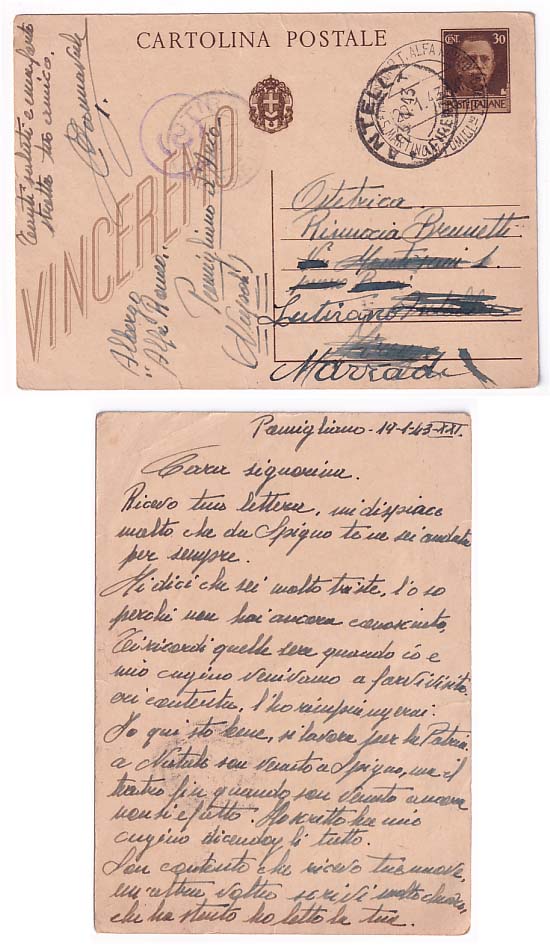 CARTOLINA POSTALE
CENT. 30
POSTE ITALIANE
VINCEREMO
ANTELLA
Tanti saluti e una forte
stretta tuo amico.
Albergo
"Alfa Romeo"
Pomigliano d'Arco
(Napoli)
Ostetrica
Rinuccia Brunetti
Lutirano
Marradi
Pomigliano - 19-1-43-XXI.
Cara signorina.
Ricevo tua lettera, mi dispiace
molto che da Spigno te ne sei andata
per sempre.
Mi dici che sei molto triste, l'o so
perchi non hai ancora conosciuto,
Ti ricordi quelle sere quando io e
mio cugino venivamo a farvi visita
eri contenta, l'ho rimpiangerai.
Io qui sto bene, si lavora per la Patria
a Natale son venuto a Spigno, ma il
teatro fin quando son venuto ancora
non si e fatto. Ho scritto ha mio
cugino dicendogli tutto.
Son contento che ricevo tue nuove,
un'altra volta scrivi molto chiaro,
che ha stento ho letto la tua.